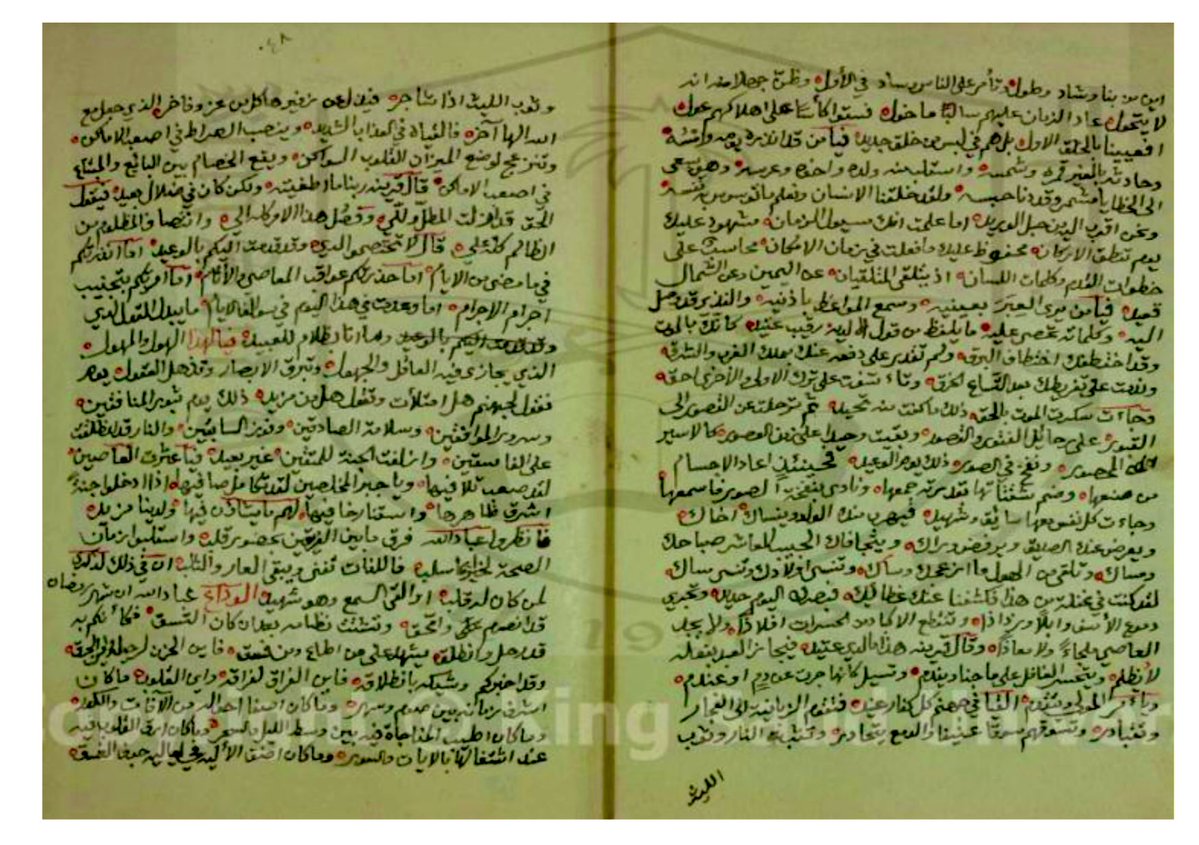 اين من بنا وشاد وطول وتأمر على الناس وساد في الأول وظن جهلا منه انه
لا يتحول عاد الزمان عليهم سالبا ما خول فسقوا كأسا على اهلاكهم عول
افعيينا بالخلق الاول بل هم في لبس من خلق جديد فيا من قد انذره يومه وامسه
وحادثه بالعبر قمره وشمسه واستلب منه ولده واخوه وعرسه وهو يسعى
الى الخطايا مشمر وقد دنا حبسه ولقد خلقنا الانسان ونعلم ما توسوس به نفسه
ونحن اقرب اليه من حبل الوريد اما علمت انك مسؤل الزمان مشهود عليك
يوم تنطق الاركان محفوظ عليك ما فعلت في زمان الامكان محاسب على
خطوات القدم وكلمات اللسان اذ يتلقى المتلقيان عن اليمين وعن الشمال
قعيد فيا من يرى العبر بعينيه وسمع المواعظ باذنيه والنذير قد وصل
اليه وكلماته تحصى عليه ما يلفظ من قول الا لديه رقيب عتيد كانك بالموت
وقد اختطفك اختطاف البرق ولم تقدر على دفعه عنك بملك الغرب والشرق
وندمت على تفريطك بعد اتساع الخرق وتأسفت على ترك الاولى والأخرى احق
وجاءت سكرت الموت بالحق ذلك ما كنت منه تحيد ثم ترحلت عن القصور الى
القبور على حايل الفتور والقصور وبقيت وحيدا على زمن العصور كالاسير
المحصور ونفخ في الصور ذلك يوم الوعيد فحينئذ اعاد الاجسام
من صنعها وضم شتاتها بقدرته جمعها ونادى بنفخة الصور فاسمعها
وجاءت كل نفس معها سايق وشهيد فيهرب منك الولد وينساك اخاك
ويعرض عنك الصديق ويرفض وراك ويتجافاك الحبيب المعاشر صباحك
ومساك وتلقى من الهول ما ازعجك وساك وتنسى اولادك وتنسى نساك
لقد كنت في غفلة من هذا فكشفنا عنك غطاءك فبصرك اليوم حديد وتجري
دموع الأسف وابلا ورذاذا وتنقطع الاكباد من الحسرات افلاذا ولا يجد
العاصي ملجاء ولا معاذا وقال قرينه هذا ما لدي عتيد فيجاز العبد بفعله
لا بظلم ويتحسر الغافل على ما جنا ويندم وتسيل كأنها جرت عن دم او عندم
ويأمر المولى ويتقدم القيا في جهنم كل كفار عنيد فتقوم الزبانية الى الفجار
وتتبادر وتسوقهم سوقا عنيفا والدمع يتحادر وتثب النار وثب
الليث
٠٤٨
وثوب الليث اذا شاجر فيذل من زفيرها كل من عز وفاخر الذي جعل مع
الله الها آخر فالقياه في العذاب الشديد وينصب الصراط في اصعب الاماكن
وتنزعج لوضع الميزان القلوب السواكن ويقع الخصام بين البائع والمبتاع
في اصعب الاماكن قال قرينه ربنا ما اطغيته ولكن كان في ضلال بعيد فيقول
الحق قد ازلت المطل واللي وفصل هذا الامر كله الي وانتصا والمظلوم من
الظالم كله علي قال لا تختصموا لدي وقد قدمت اليكم بالوعيد اما انذرتكم
في ما مضى من الايام اما حذرتكم عواقب المعاصي والآثام اما امرتكم بتجنيب
اجرام الاجرام اما وعدت في هذا اليوم في سوالف الايام ما يبدل القول لدي
وقد قدمت اليكم بالوعيد وما انا بظلام للعبيد فيا لهذا الهول والمهول
الذي يجازى فيه العاقل والجهول وتبرق الابصار وتذهل العقول يوم
نقول لجهنم هل امتلأت وتقول هل من مزيد ذلك يوم ثبور المنافقين
وسرور الموافقين وسلامة الصادقين وفوز السابقين والنار قد اطلقت
على الفاسقين وازلفت الجنة للمتقين غير بعيد فيا عثرات العاصين
لقد صعب تلافيها ويا جبر المخلصين لقد تكامل صافيها اذا ادخلوا جنة
اشرق ظاهرها واستنار خافيها لهم ما يشاؤن فيها ولدينا مزيد
فانظروا عباد الله فرق ما بين الفريقين بحضور قلب واستلبوا زمان
الصحة فاللذات تفنى ويبقى العار والثلب ان في ذلك لذكرى
لمن كان له قلب او القى السمع وهو شهيد الوداع عباد الله ان شهر رمضان
قد انصرم وانمحق وتشتت نظامه بعد ان كان اتسق فكأنكم به
قد رحل وانطلق يشهد على من اطاع ومن فسق فاين الحزن لرحيله واين الحرق
وقد اخبركم وشيكه بانطلاقه فاين القلق لفراقه واين القلوب ما كان
اشرف زمانه بين صوم وسهر وما كان اصفا احواله من الآفات والكدر
وما كان اطيب المناجاة فيه بين وسط الليل والسحر وما كان ارق القلوب فيه
عند اشتغالها بالايات والسور وما كان اضوا الآلية في لياليه جوف الغسق